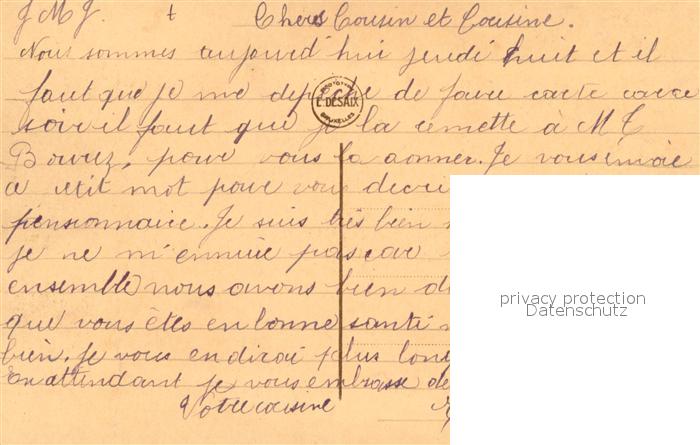 J M J. t Chers Cousin et Cousine.
Nous sommes aujourd'hui jeudi huit et il
faut que je me depeche de faire carte carce
soir il faut que je la remette à M
PHOTOTYPIE
E. DESAIX
BRUXELLES
pour vous la donner. Je vous envoie
ce petit mot pour vous decri
pensionnaire. Je suis très bien
je ne m'ennuie pas car
ensemble nous avons bien d
que vous êtes en bonne santé
bien. Je vous en dirai plus long
En attendant je vous embrasse de
Votre cousine
privacy protection
Datenschutz